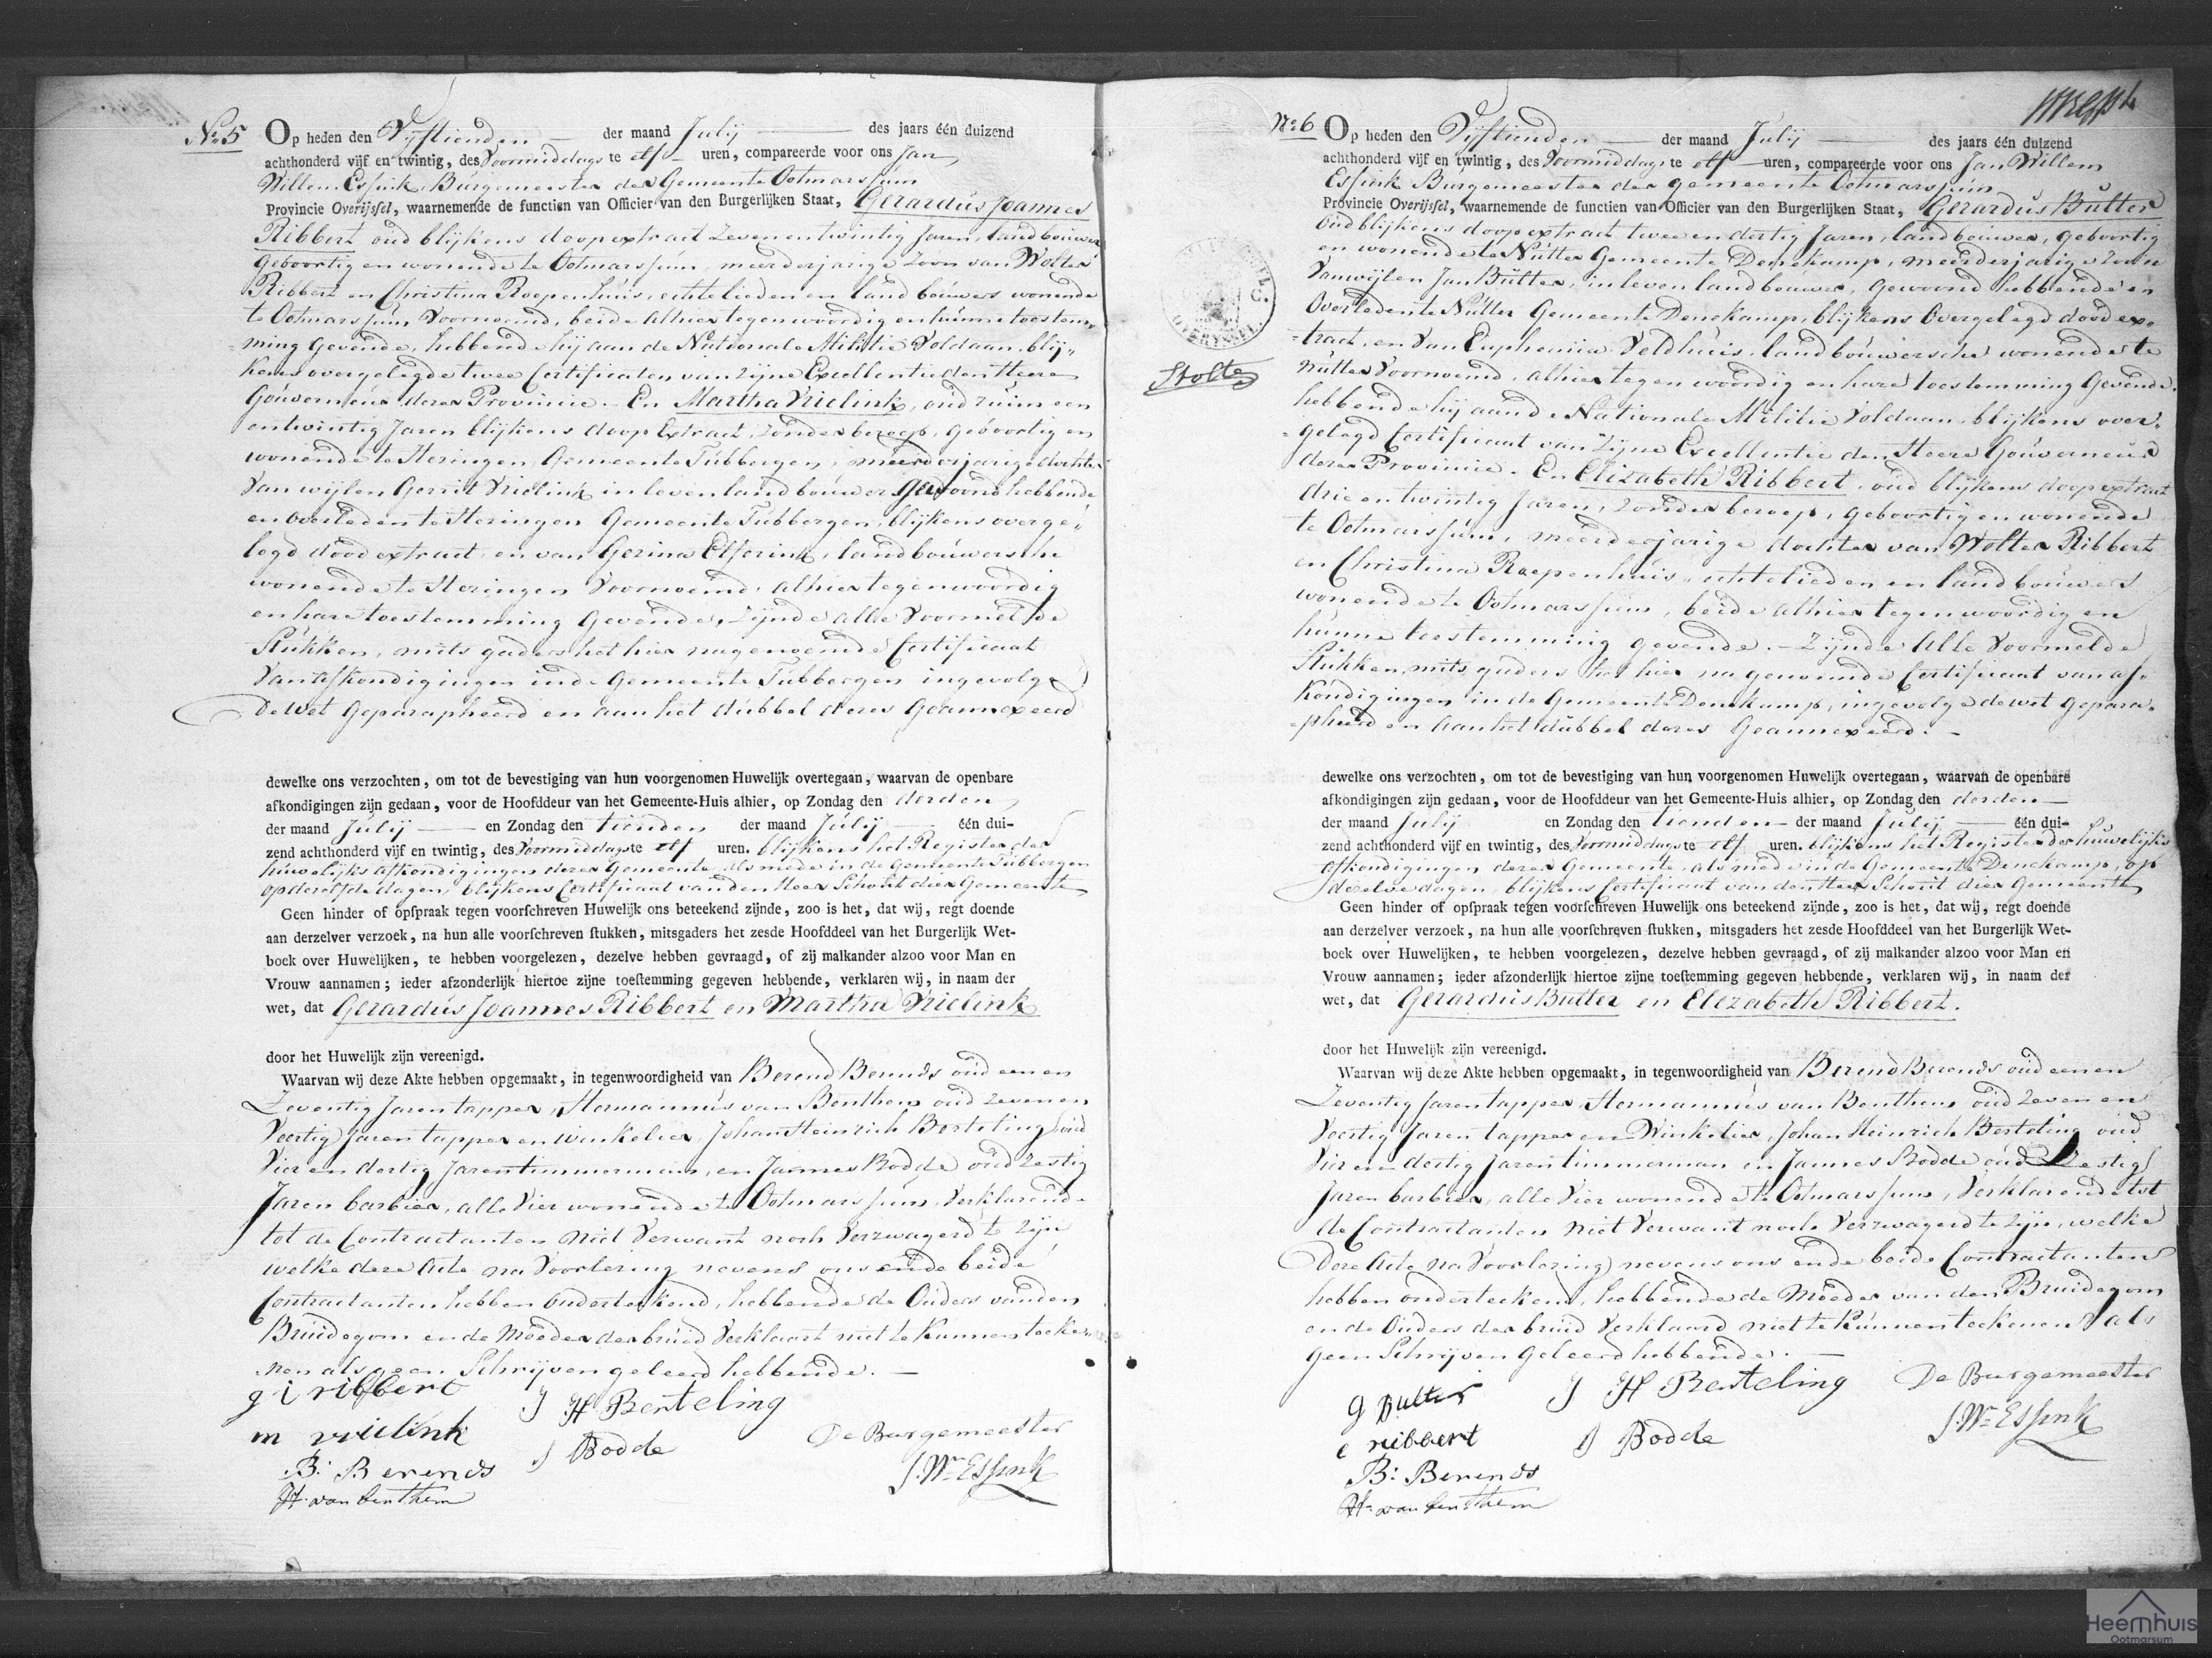 No 5
Op heden den Vijftienden der maand Julij des jaars één duizend
achthonderd vijf en twintig, des Voormiddags te elf uren, compareerde voor ons Jan
Willem Essink, Burgemeester der Gemeente Ootmarssum
Provincie Overijsſel, waarnemende de functien van Officier van den Burgerlijken Staat, Gerardus Joannes
Ribbert oud blijkens doopextract Zevenentwintig Jaren, landbouwer
geboortig en wonende te Ootmarssum, meerderjarige Zoon van Wolter
Ribbert en Christina Roepenhuis, echtelieden en landbouwers wonende
te Ootmarssum Voornoemd, beide alhier tegenwoordig en hunne toestem„
ming gevende, hebbende hij aan de Nationale Militie Voldaan, blij„
kens overgelegde twee Certificaten van Zijne Excellentie den Heere
Gouverneur dezer Provincie – En Martha Vrielink, oud ruim een
entwintig Jaren blijkens doop Extract, Zonder beroep, geboortig en
wonende te Hezingen, Gemeente Tubbergen, meerderjarige dochter
Van wijlen Gerrit Vrielink in leven landbouwer Gewoond hebbende
en overleden te Hezingen Gemeente Tubbergen, blijkens overge„
legd doodextract, en van Gezina Elferink, landbouwersche
wonende te Hezingen Voornoemd, alhier tegenwoordig
en hare toestemming Gevende, Zijnde alle Voormelde
Stukken, mits gaders het hier nagenoemde Certificaat
Van Afkondigingen in de Gemeente Tubbergen ingevolge
De wet Geparapheerd en aan het dubbel dezes Geannexeerd
dewelke ons verzochten, om tot de bevestiging van hun voorgenomen Huwelijk overtegaan, waarvan de openbare
afkondigingen zijn gedaan, voor de Hoofddeur van het Gemeente-Huis alhier, op Zondag den derden
der maand Julij en Zondag den tienden der maand Julij één dui-
zend achthonderd vijf en twintig, des Voormiddags te elf uren. blijkens het Register der
huwelijks Afkondigingen dezer Gemeente, als mede in de Gemeente Tubbergen
op dezelfde dagen, blijkens Certificaat van den Heer Schout dier Gemeente
Geen hinder of opſpraak tegen voorſchreven Huwelijk ons beteekend zijnde, zoo is het, dat wij, regt doende
aan derzelver verzoek, na hun alle voorſchreven ſtukken, mitsgaders het zesde Hoofddeel van het Burgerlijk Wet-
boek over Huwelijken, te hebben voorgelezen, dezelve hebben gevraagd, of zij malkander alzoo voor Man en
Vrouw aannamen; ieder afzonderlijk hiertoe zijne toeſtemming gegeven hebbende, verklaren wij, in naam der
wet, dat Gerardus Joannes Ribbert en Martha Vrielink
door het Huwelijk zijn vereenigd.
Waarvan wij deze Akte hebben opgemaakt, in tegenwoordigheid van Berend Berends oud een en
Zeventig Jaren tapper, Hermannus van Benthem oud Zeven en
Veertig Jaren tapper en winkelier, Johan Heinrich Berteling oud
Vier en dertig Jaren timmerman, en Jannes Bodde oud Zestig
Jaren barbier, alle Vier wonende te Ootmarssum, Verklarende
tot de Contractanten niet Verwant noch Verzwagerd te Zijn
welke deze Acte na Voorlezing nevens ons ende beide
Contractanten hebben onderteekend, hebbende de Ouders van den
Bruidegom en de Moeder der bruid Verklaart niet te kunnen teeke„
nen als geen Schrijven geleerd hebbende. –
g j ribbert
J H Berteling
m vrielink
J Bodde
De Burgemeester
B: Berends
J. Wm Essink
H. van benthem
No 6
Op heden den Vijftienden der maand Julij des jaars één duizend
achthonderd vijf en twintig, des Voormiddags te elf uren, compareerde voor ons Jan Willem
Essink Burgemeester der gemeente Ootmarssum
Provincie Overijsſel, waarnemende de functien van Officier van den Burgerlijken Staat, Gerardus Bulter
Oud blijkens doopextract twee en dertig Jaren, landbouwer, geboortig
en wonende te Nutter Gemeente Denekamp, meerderjarige Zoon
Van wijlen Jan Bulter, in leven landbouwer, gewoond hebbende en
Overleden te Nutter Gemeente Denekamp, blijkens Overgelegd doodex„
tract, en Van Euphemia Veldhuis, landbouwersche wonende te
Nutter Voornoemd, alhier tegenwoordig en hare toestemming Gevende,
hebbende hij aan de Nationale Militie Voldaan, blijkens over„
gelegd Certificaat van Zijne Excellentie den Heere Gouverneur
dezer Provincie. En Elizabeth Ribbert, oud blijkens doopextract
drie en twintig Jaren, Zonder beroep, geboortig en wonende
te Ootmarssum, meerderjarige dochter van Wolter Ribbert
en Christina Roepenhuis, echtelieden en landbouwers
wonende te Ootmarssum, beide alhier tegenwoordig en
hunne toestemming gevende. – Zijnde Alle Voormelde
Stukken, mits gaders het hier nagenoemde Certificaat van af„
kondigingen in de Gemeente Denekamp, ingevolge de wet gepara„
pheerd en aan het dubbel dezes Geannexeerd. –
Stolte
dewelke ons verzochten, om tot de bevestiging van hun voorgenomen Huwelijk overtegaan, waarvan de openbare
afkondigingen zijn gedaan, voor de Hoofddeur van het Gemeente-Huis alhier, op Zondag den derden
der maand Julij en Zondag den tienden der maand Julij één dui-
zend achthonderd vijf en twintig, des Voormiddags te elf uren. blijkens het Register der huwelijks
Afkondigingen dezer Gemeente, als mede in de Gemeente Denekamp, op
dezelve dagen, blijkens Certificaat van den Heer Schout dier Gemeente
Geen hinder of opſpraak tegen voorſchreven Huwelijk ons beteekend zijnde, zoo is het, dat wij, regt doende
aan derzelver verzoek, na hun alle voorſchreven ſtukken, mitsgaders het zesde Hoofddeel van het Burgerlijk Wet-
boek over Huwelijken, te hebben voorgelezen, dezelve hebben gevraagd, of zij malkander alzoo voor Man en
Vrouw aannamen; ieder afzonderlijk hiertoe zijne toeſtemming gegeven hebbende, verklaren wij, in naam der
wet, dat Gerardus Bulter en Elezabeth Ribbert.
door het Huwelijk zijn vereenigd.
Waarvan wij deze Akte hebben opgemaakt, in tegenwoordigheid van Berend Berends oud een en
Zeventig Jaren tapper, Hermannus van Benthem oud Zeven en
Veertig Jaren tapper en Winkelier, Johan Heinrich Berteling oud
Vier en dertig Jaren timmerman en Jannes Bodde oud Zestig
Jaren barbier, alle Vier wonende te Ootmarssum, Verklarende tot
de Contractanten niet Verwant noch Verzwagerd te zijn, welke
Deze Acte na Voorlezing nevens ons ende beide Contractanten
hebben onderteekend, hebbende de Moeder van den Bruidegom
en de Ouders der bruid Verklaard niet te kunnen teekenen als
geen Schrijven Geleerd hebbende. –
g Bulter
J H Berteling
De Burgemeester
e ribbert
J Bodde
J. Wm Essink
B: Berends
H. van benthem
Heemhuis
Ootmarsum